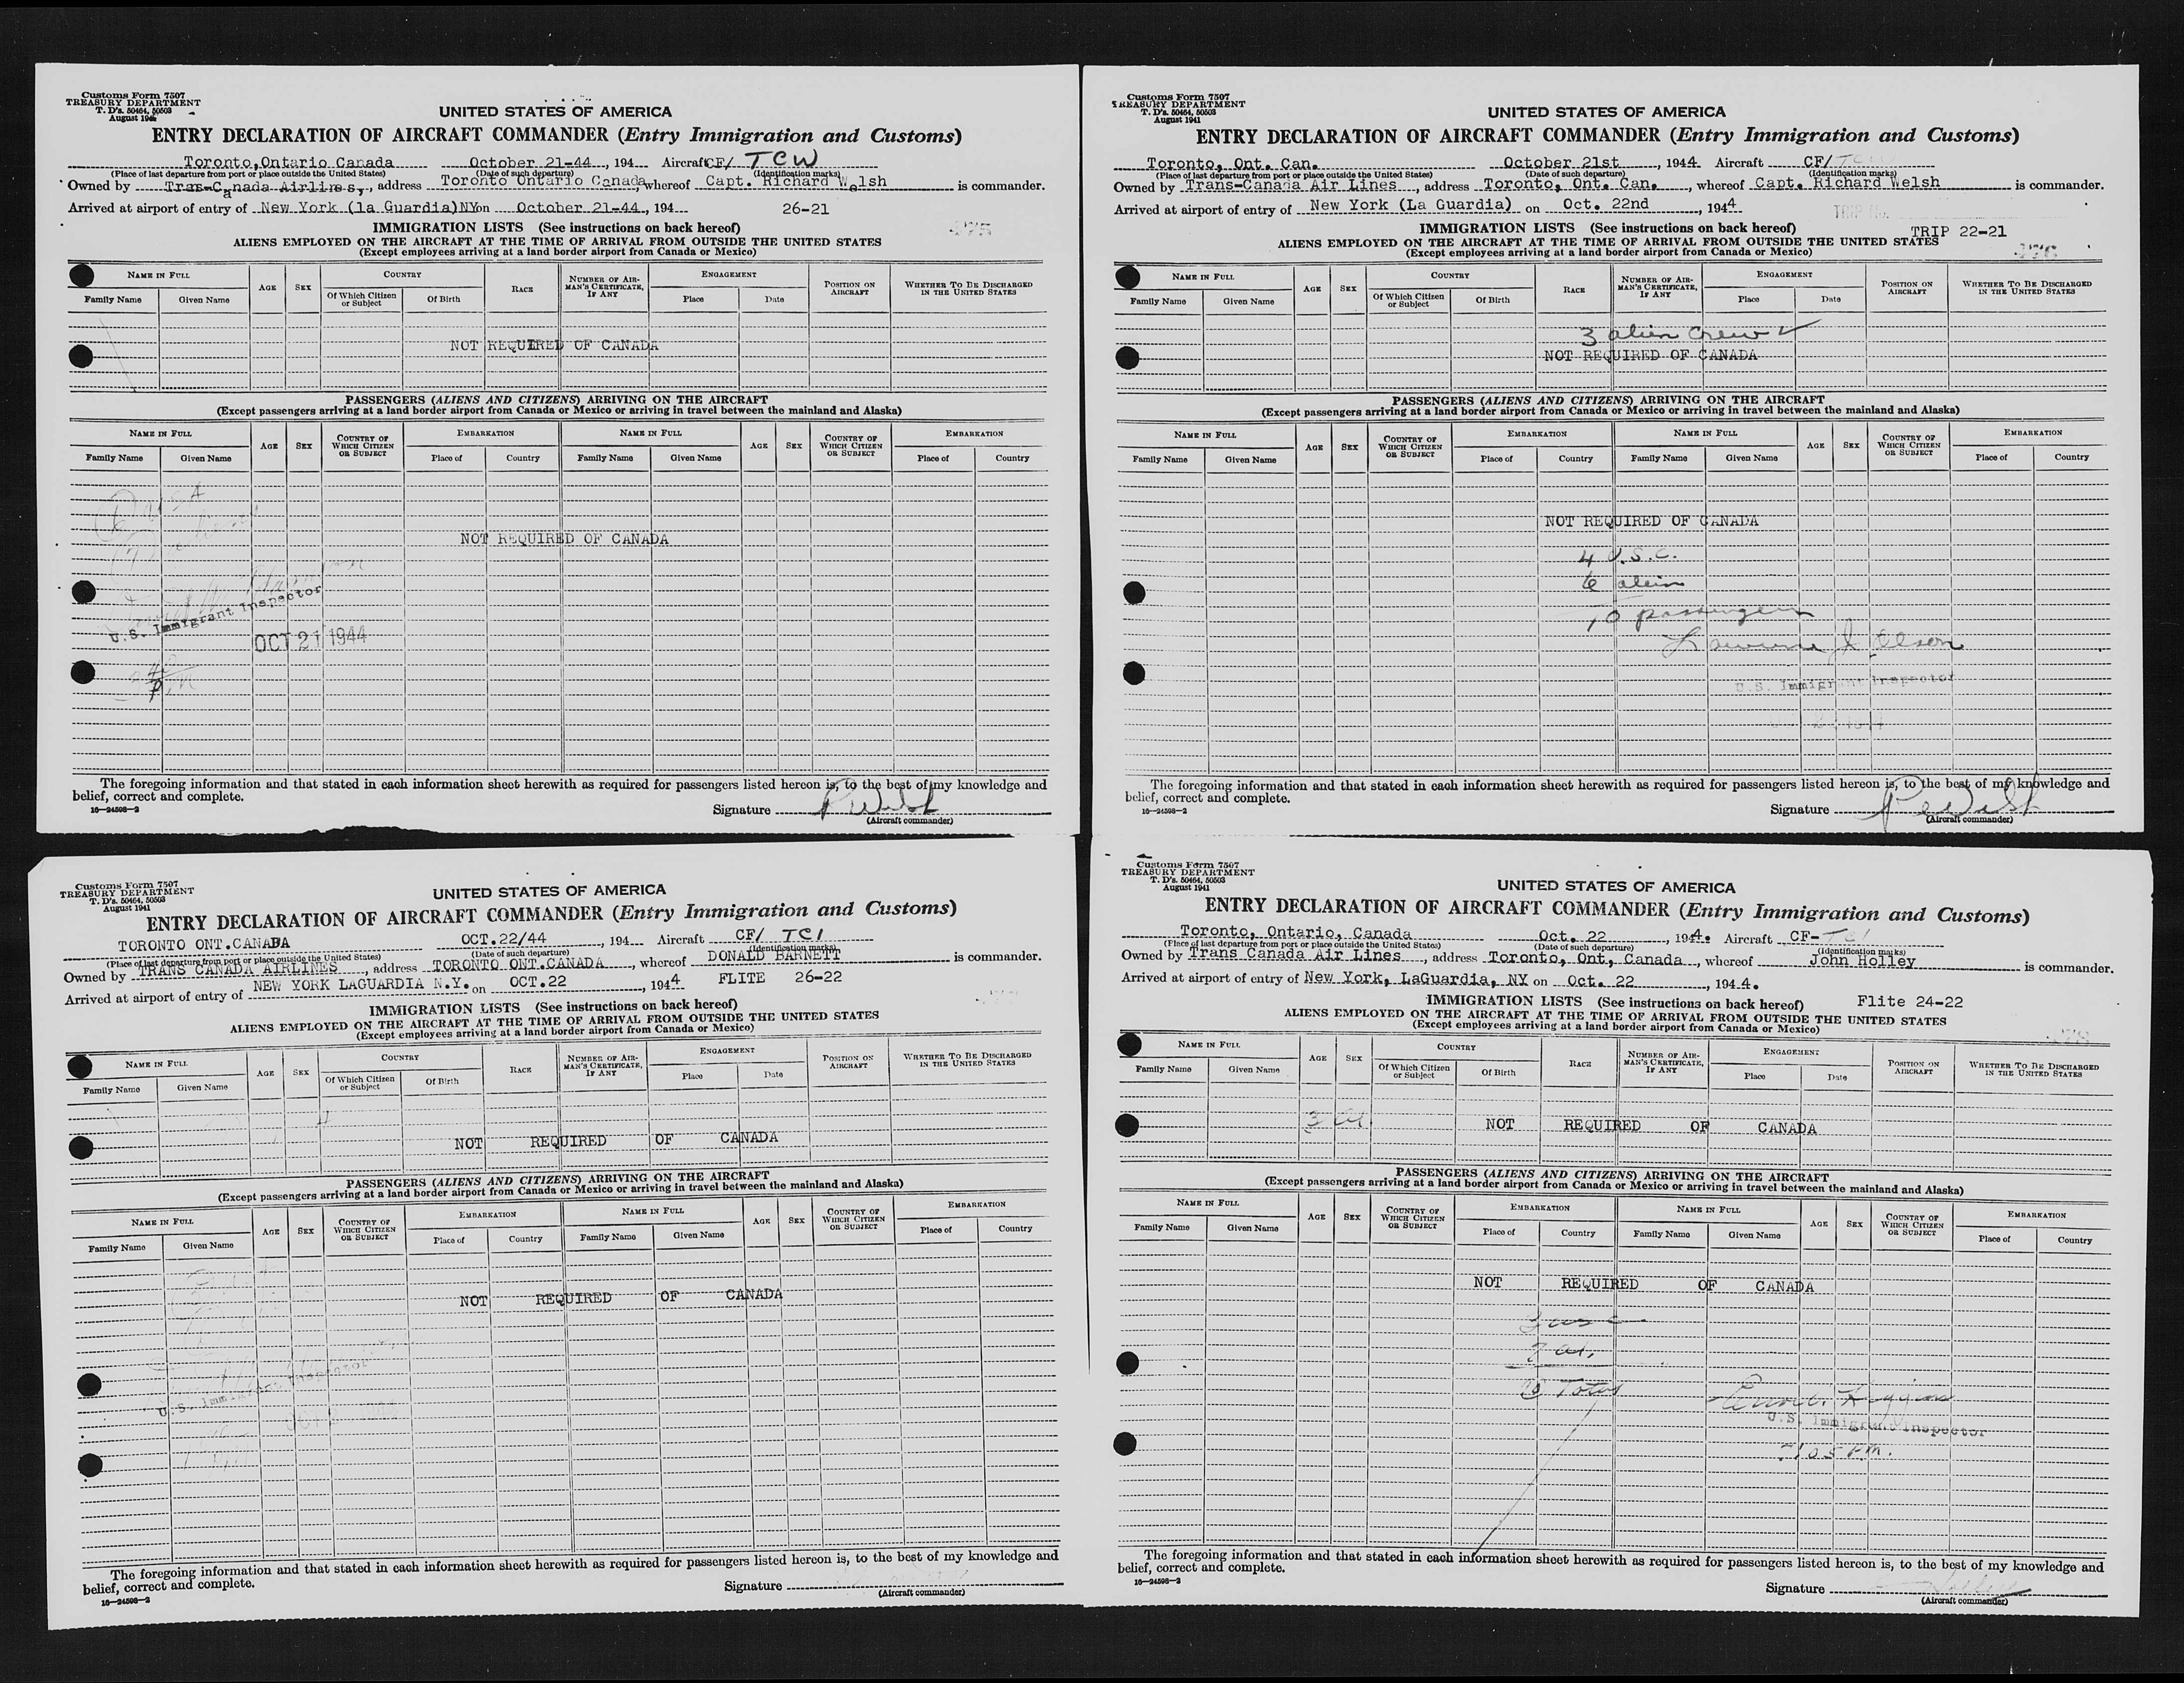 Customs Form 7507
TREASURY DEPARTMENT
T. D's. 50464, 50503
August 1941
UNITED STATES OF AMERICA
ENTRY DECLARATION OF AIRCRAFT COMMANDER (Entry Immigration and Customs)
Toronto,Ontario Canada October 21-44, 194 Aircraft CF/ TCW
(Place of last departure from port or place outside the United States) (Date of such departure) (Identification marks)
Owned by Tras-Canada Airlines, address Toronto Ontario Canada, whereof Capt. Richard Welsh is commander.
Arrived at airport of entry of New York (la Guardia)NY on October 21-44, 194 26-21
IMMIGRATION LISTS (See instructions on back hereof) 475
ALIENS EMPLOYED ON THE AIRCRAFT AT THE TIME OF ARRIVAL FROM OUTSIDE THE UNITED STATES
(Except employees arriving at a land border airport from Canada or Mexico)
NAME IN FULL AGE SEX COUNTRY RACE NUMBER OF AIRMAN'S CERTIFICATE, IF ANY ENGAGEMENT POSITION ON AIRCRAFT WHETHER TO BE DISCHARGED IN THE UNITED STATES
Family Name Given Name Of Which Citizen or Subject Of Birth Place Date
NOT REQUIRED OF CANADA
PASSENGERS (ALIENS AND CITIZENS) ARRIVING ON THE AIRCRAFT
(Except passengers arriving at a land border airport from Canada or Mexico or arriving in travel between the mainland and Alaska)
NAME IN FULL AGE SEX COUNTRY OF WHICH CITIZEN OR SUBJECT EMBARKATION NAME IN FULL AGE SEX COUNTRY OF WHICH CITIZEN OR SUBJECT EMBARKATION
Family Name Given Name Place of Country Family Name Given Name Place of Country
NOT REQUIRED OF CANADA
U.S. Immigrant Inspector
OCT 21 1944
The foregoing information and that stated in each information sheet herewith as required for passengers listed hereon is, to the best of my knowledge and
belief, correct and complete.
16—24598-2
Signature R Welsh
(Aircraft commander)
Customs Form 7507
TREASURY DEPARTMENT
T. D's. 50464, 50503
August 1941
UNITED STATES OF AMERICA
ENTRY DECLARATION OF AIRCRAFT COMMANDER (Entry Immigration and Customs)
Toronto, Ont. Can. October 21st, 1944 Aircraft CF/TCW
(Place of last departure from port or place outside the United States) (Date of such departure) (Identification marks)
Owned by Trans-Canada Air Lines, address Toronto, Ont. Can., whereof Capt. Richard Welsh is commander.
Arrived at airport of entry of New York (La Guardia) on Oct. 22nd, 1944 TRIP No.
IMMIGRATION LISTS (See instructions on back hereof) TRIP 22-21
ALIENS EMPLOYED ON THE AIRCRAFT AT THE TIME OF ARRIVAL FROM OUTSIDE THE UNITED STATES
(Except employees arriving at a land border airport from Canada or Mexico) 476
NAME IN FULL AGE SEX COUNTRY RACE NUMBER OF AIRMAN'S CERTIFICATE, IF ANY ENGAGEMENT POSITION ON AIRCRAFT WHETHER TO BE DISCHARGED IN THE UNITED STATES
Family Name Given Name Of Which Citizen or Subject Of Birth Place Date
3 alien crew
NOT REQUIRED OF CANADA
PASSENGERS (ALIENS AND CITIZENS) ARRIVING ON THE AIRCRAFT
(Except passengers arriving at a land border airport from Canada or Mexico or arriving in travel between the mainland and Alaska)
NAME IN FULL AGE SEX COUNTRY OF WHICH CITIZEN OR SUBJECT EMBARKATION NAME IN FULL AGE SEX COUNTRY OF WHICH CITIZEN OR SUBJECT EMBARKATION
Family Name Given Name Place of Country Family Name Given Name Place of Country
NOT REQUIRED OF CANADA
4 U.S.C.
6 alein
10 passengers
Lawrence J Olson
U.S. Immigrant Inspector
The foregoing information and that stated in each information sheet herewith as required for passengers listed hereon is, to the best of my knowledge and
belief, correct and complete.
16—24598-2
Signature R Welsh
(Aircraft commander)
Customs Form 7507
TREASURY DEPARTMENT
T. D's. 50464, 50503
August 1941
UNITED STATES OF AMERICA
ENTRY DECLARATION OF AIRCRAFT COMMANDER (Entry Immigration and Customs)
TORONTO ONT.CANADA OCT.22/44, 194 Aircraft CF/ TCI
(Place of last departure from port or place outside the United States) (Date of such departure) (Identification marks)
Owned by TRANS CANADA AIRLINES, address TORONTO ONT.CANADA, whereof DONALD BARNETT is commander.
Arrived at airport of entry of NEW YORK LAGUARDIA N.Y. on OCT.22, 1944 FLITE 26-22
IMMIGRATION LISTS (See instructions on back hereof)
ALIENS EMPLOYED ON THE AIRCRAFT AT THE TIME OF ARRIVAL FROM OUTSIDE THE UNITED STATES
(Except employees arriving at a land border airport from Canada or Mexico)
NAME IN FULL AGE SEX COUNTRY RACE NUMBER OF AIRMAN'S CERTIFICATE, IF ANY ENGAGEMENT POSITION ON AIRCRAFT WHETHER TO BE DISCHARGED IN THE UNITED STATES
Family Name Given Name Of Which Citizen or Subject Of Birth Place Date
NOT REQUIRED OF CANADA
PASSENGERS (ALIENS AND CITIZENS) ARRIVING ON THE AIRCRAFT
(Except passengers arriving at a land border airport from Canada or Mexico or arriving in travel between the mainland and Alaska)
NAME IN FULL AGE SEX COUNTRY OF WHICH CITIZEN OR SUBJECT EMBARKATION NAME IN FULL AGE SEX COUNTRY OF WHICH CITIZEN OR SUBJECT EMBARKATION
Family Name Given Name Place of Country Family Name Given Name Place of Country
NOT REQUIRED OF CANADA
U.S. Immigrant Inspector
The foregoing information and that stated in each information sheet herewith as required for passengers listed hereon is, to the best of my knowledge and
belief, correct and complete.
16—24598-2
Signature
(Aircraft commander)
Customs Form 7507
TREASURY DEPARTMENT
T. D's. 50464, 50503
August 1941
UNITED STATES OF AMERICA
ENTRY DECLARATION OF AIRCRAFT COMMANDER (Entry Immigration and Customs)
Toronto, Ontario, Canada Oct. 22, 1944. Aircraft CF-TCI
(Place of last departure from port or place outside the United States) (Date of such departure) (Identification marks)
Owned by Trans Canada Air Lines, address Toronto, Ont, Canada, whereof John Holley is commander.
Arrived at airport of entry of New York, LaGuardia, NY on Oct. 22, 1944.
IMMIGRATION LISTS (See instructions on back hereof) Flite 24-22
ALIENS EMPLOYED ON THE AIRCRAFT AT THE TIME OF ARRIVAL FROM OUTSIDE THE UNITED STATES
(Except employees arriving at a land border airport from Canada or Mexico)
NAME IN FULL AGE SEX COUNTRY RACE NUMBER OF AIRMAN'S CERTIFICATE, IF ANY ENGAGEMENT POSITION ON AIRCRAFT WHETHER TO BE DISCHARGED IN THE UNITED STATES
Family Name Given Name Of Which Citizen or Subject Of Birth Place Date
3 al. NOT REQUIRED OF CANADA
PASSENGERS (ALIENS AND CITIZENS) ARRIVING ON THE AIRCRAFT
(Except passengers arriving at a land border airport from Canada or Mexico or arriving in travel between the mainland and Alaska)
NAME IN FULL AGE SEX COUNTRY OF WHICH CITIZEN OR SUBJECT EMBARKATION NAME IN FULL AGE SEX COUNTRY OF WHICH CITIZEN OR SUBJECT EMBARKATION
Family Name Given Name Place of Country Family Name Given Name Place of Country
NOT REQUIRED OF CANADA
3 usc
7 al.
10 Total
U.S. Immigrant Inspector
7:05 PM.
The foregoing information and that stated in each information sheet herewith as required for passengers listed hereon is, to the best of my knowledge and
belief, correct and complete.
16—24598-2
Signature
(Aircraft commander)